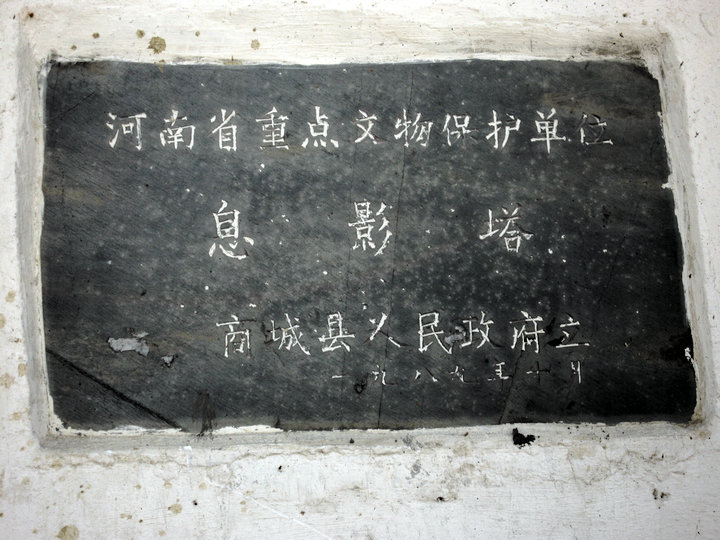 河南省重点文物保护单位
息影塔
商城县人民政府立
一九八九年十月